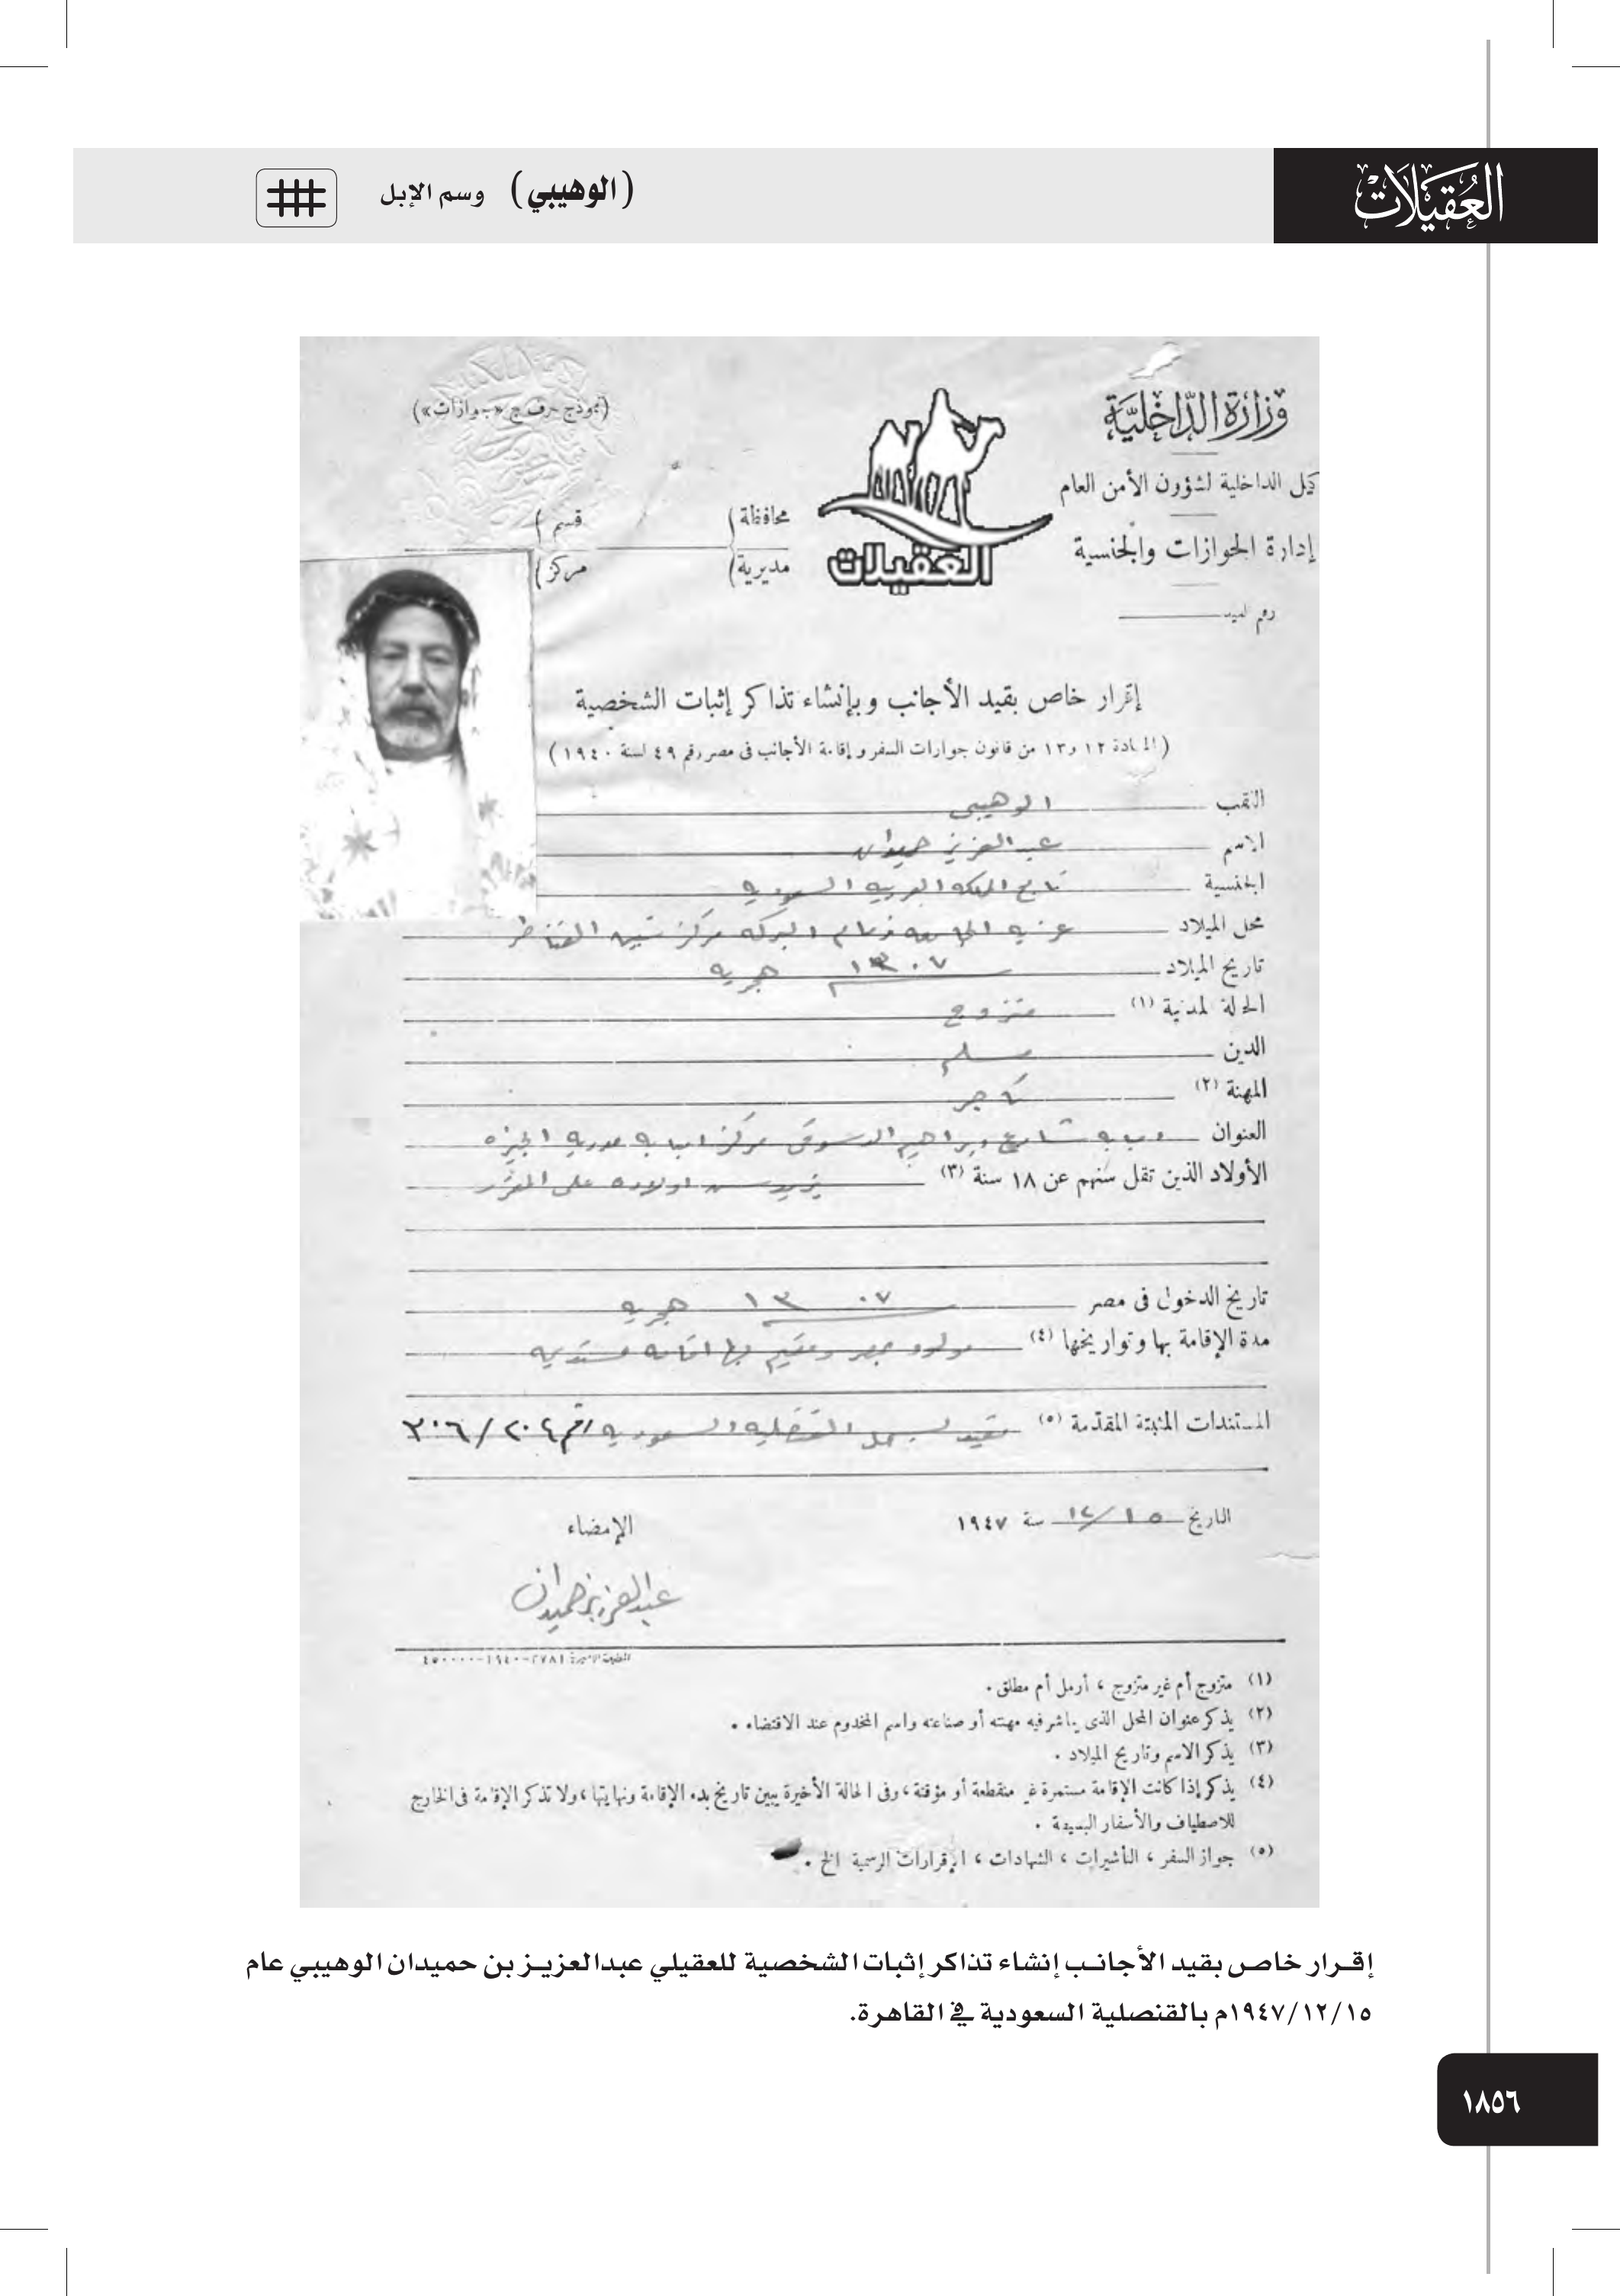 العُقيلات
(الوهيبي) وسم الإبل
وزارة الداخلية
(نموذج حرف ج «جوازات»)
كيل الداخلية لشؤون الأمن العام
إدارة الجوازات والجنسية
محافظة) قسم)
مديرية) مركز)
العقيلات
إقرار خاص بقيد الأجانب وبإنشاء تذاكر إثبات الشخصية
(المادة ١٢ و١٣ من قانون جوازات السفر وإقامة الأجانب فى مصر رقم ٤٩ لسنة ١٩٤٠)
اللقب الوهيبى
الاسم عبد العزيز حميدان
الجنسية تابع المملكه العربيه السعوديه
محل الميلاد عزبه الجامعه زمام البركه مركز شبين القناطر
تاريخ الميلاد ١٣٠٧ هجريه
الحالة المدنية (١) متزوج
الدين مسلم
المهنة (٢) تاجر
العنوان امبابه شارع ابراهيم الدسوقى مركز امبابه مديريه الجيزه
الأولاد الذين تقل سنهم عن ١٨ سنة (٣) اولاده على المقرر
تاريخ الدخول فى مصر ١٣٠٧ هجريه
مدة الإقامة بها وتواريخها (٤) مولود بمصر ومقيم بها اقامه مستديمه
المستندات المثبتة المقدمة (٥) مقيد بسجل القنصليه السعوديه رقم ٢٠٤/٣٠٦
التاريخ ١٥/١٢ سنة ١٩٤٧
الإمضاء
عبدالعزيز حميدان
(١) متزوج أم غير متزوج، أرمل أم مطلق.
(٢) يذكر عنوان المحل الذى يباشر فيه مهنته أو صناعته واسم المخدوم عند الاقتضاء.
(٣) يذكر الاسم وتاريخ الميلاد.
(٤) يذكر إذا كانت الإقامة مستمرة غير منقطعة أو مؤقتة، وفى الحالة الأخيرة يبين تاريخ بدء الإقامة ونهايتها، ولا تذكر الإقامة فى الخارج
للاصطياف والأسفار البسيطة.
(٥) جواز السفر، التأشيرات، الشهادات، الإقرارات الرسمية الخ.
إقرار خاص بقيد الأجانب إنشاء تذاكر إثبات الشخصية للعقيلي عبدالعزيز بن حميدان الوهيبي عام
١٩٤٧/١٢/١٥م بالقنصلية السعودية في القاهرة.
١٨٥٦